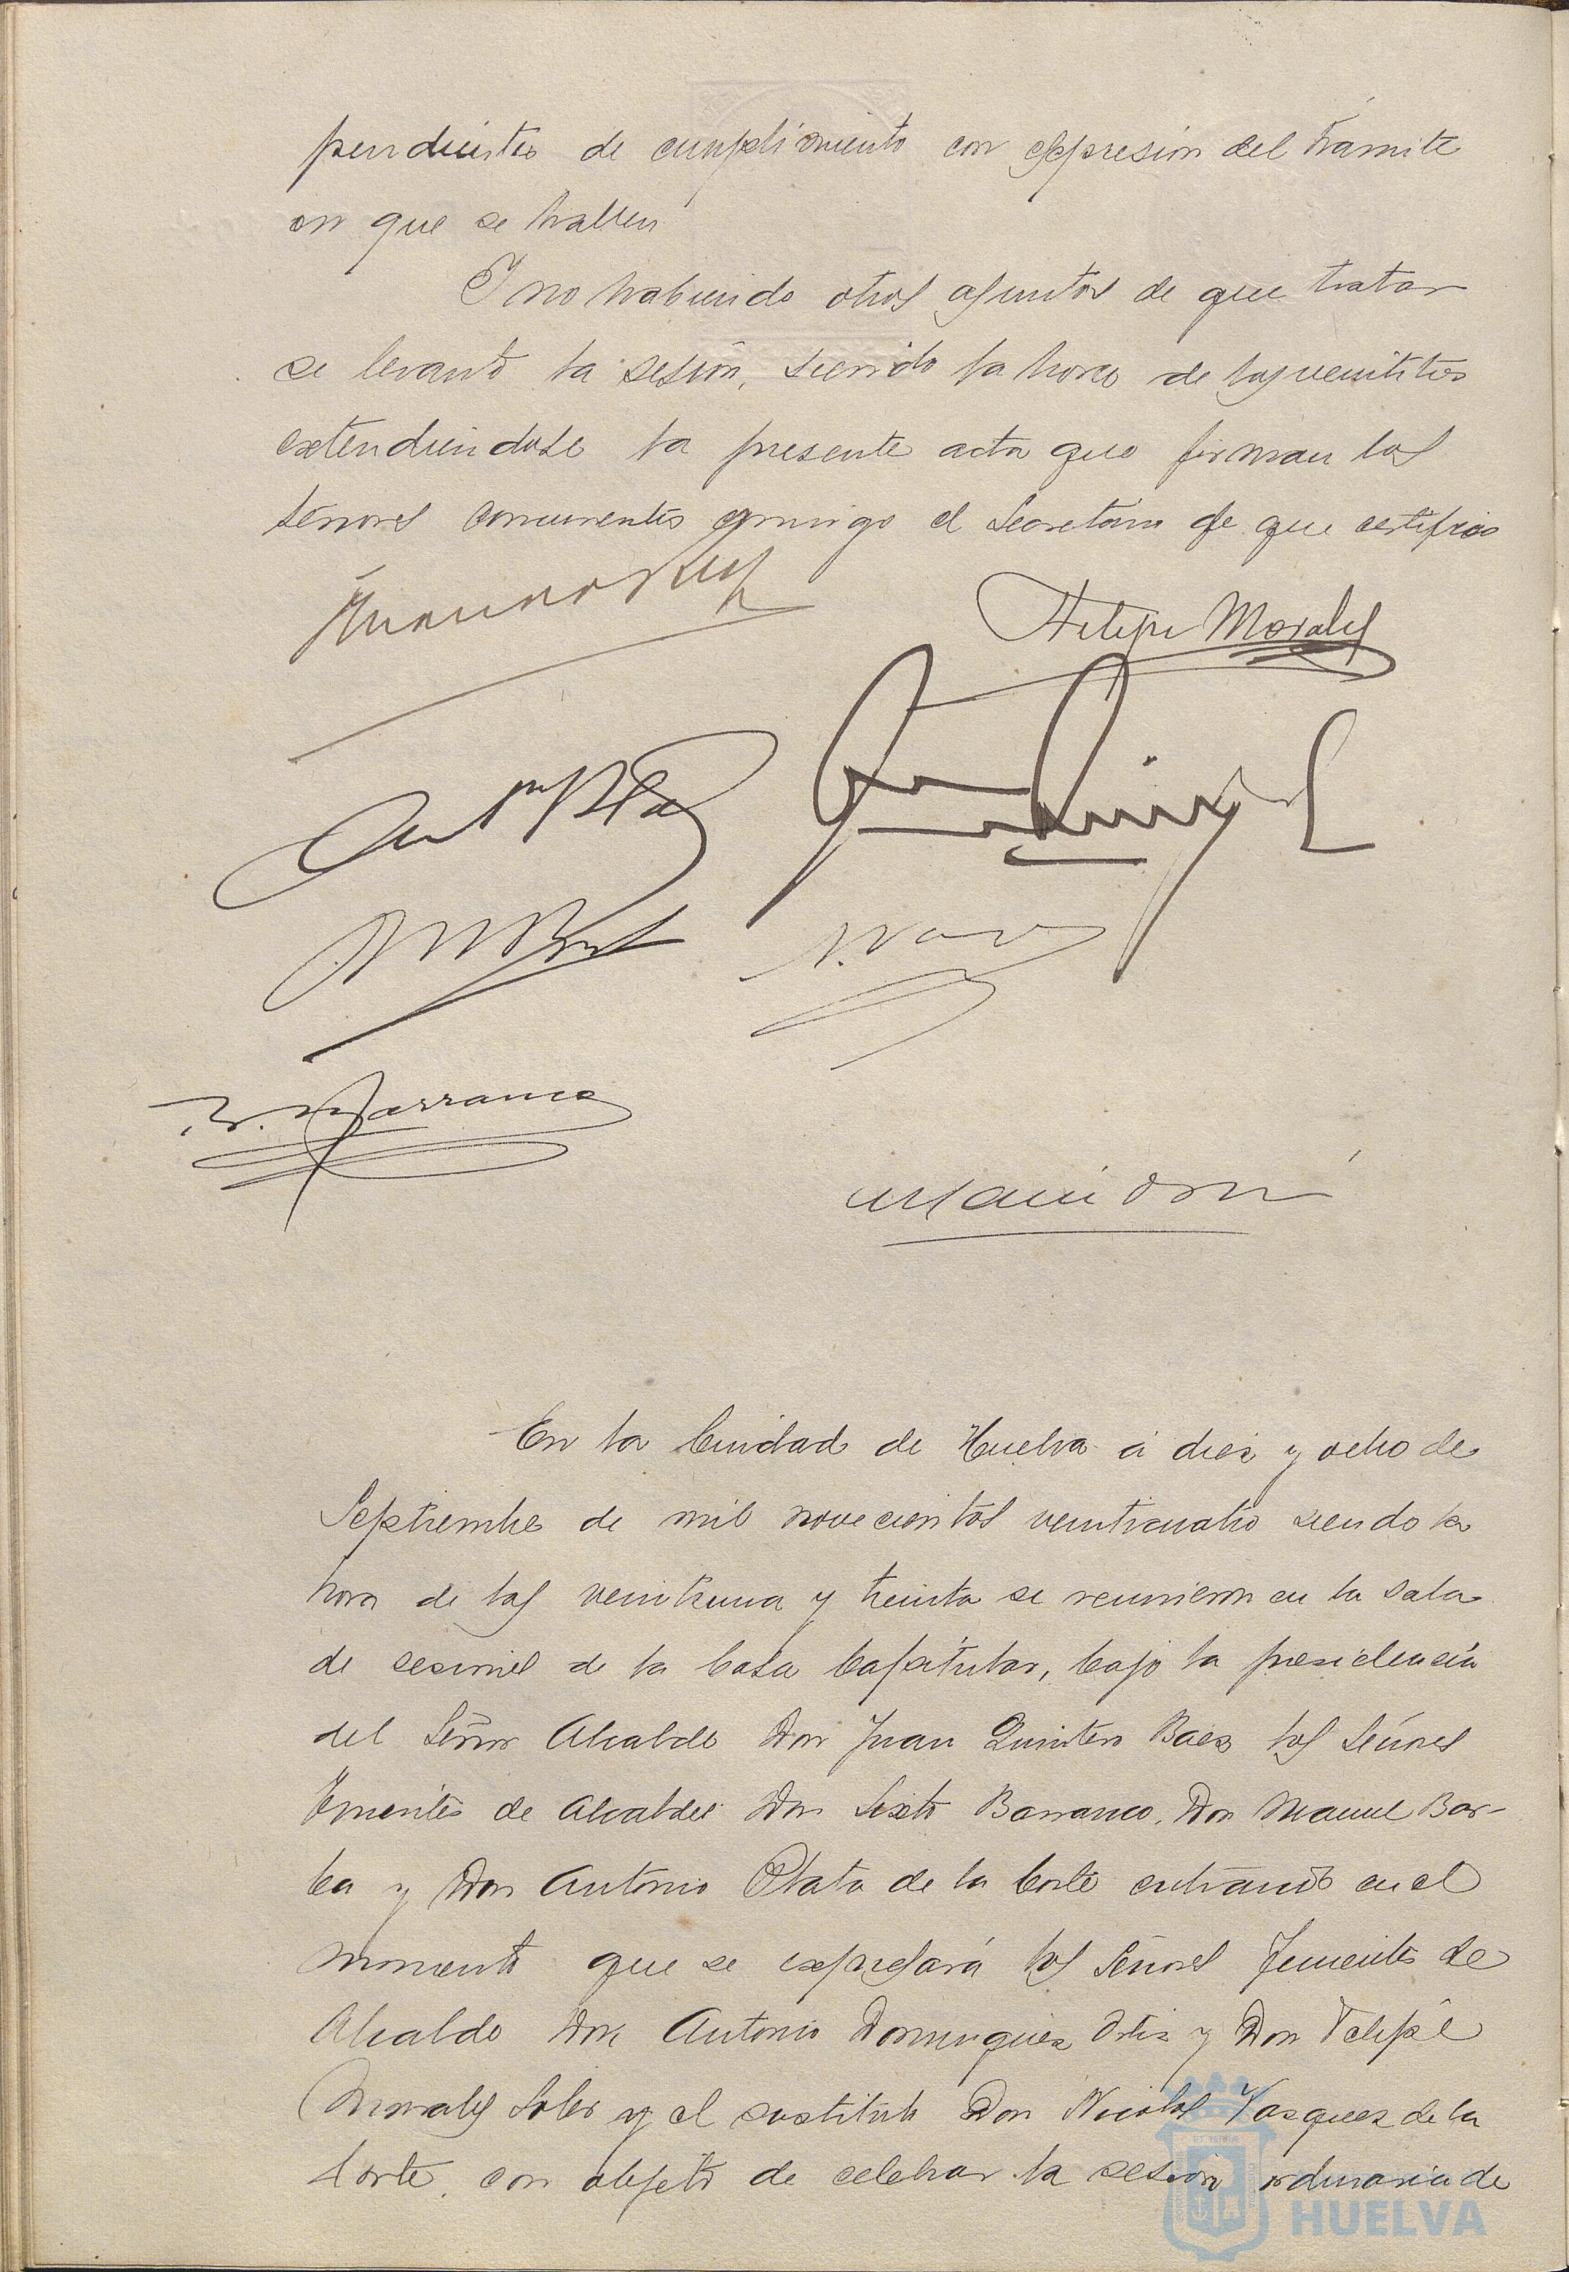 pendientes de cumplimiento con expresión del trámite
en que se hallen
Y no habiendo otros asuntos de que tratar
se levantó la sesión, siendo la hora de las veintitres
extendiendose la presente acta que firman los
señores concurrentes conmigo el Secretario de que certifico
Felipe Morales
Ant Pla
M Barba
N. Vaz
S. Barranco
En la Ciudad de Huelva á diez y ocho de
Septiembre de mil novecientos veinticuatro siendo la
hora de las veintiuna y treinta se reunieron en la sala
de sesiones de la Casa Capitular, bajo la presidencia
del Señor Alcalde Don Juan Quintero Baez los Señores
Tenientes de Alcalde Don Sixto Barranco, Don Manuel Bar-
ba y Don Antonio Plata de la Corte entrando en el
momento que se expresará los Señores Tenientes de
Alcalde Don Antonio Dominguez Ortiz y Don Felipe
Morales Soler y el sustituto Don Nicolas Vazquez de la
Corte, con objeto de celebrar la sesión ordinaria de
HUELVA